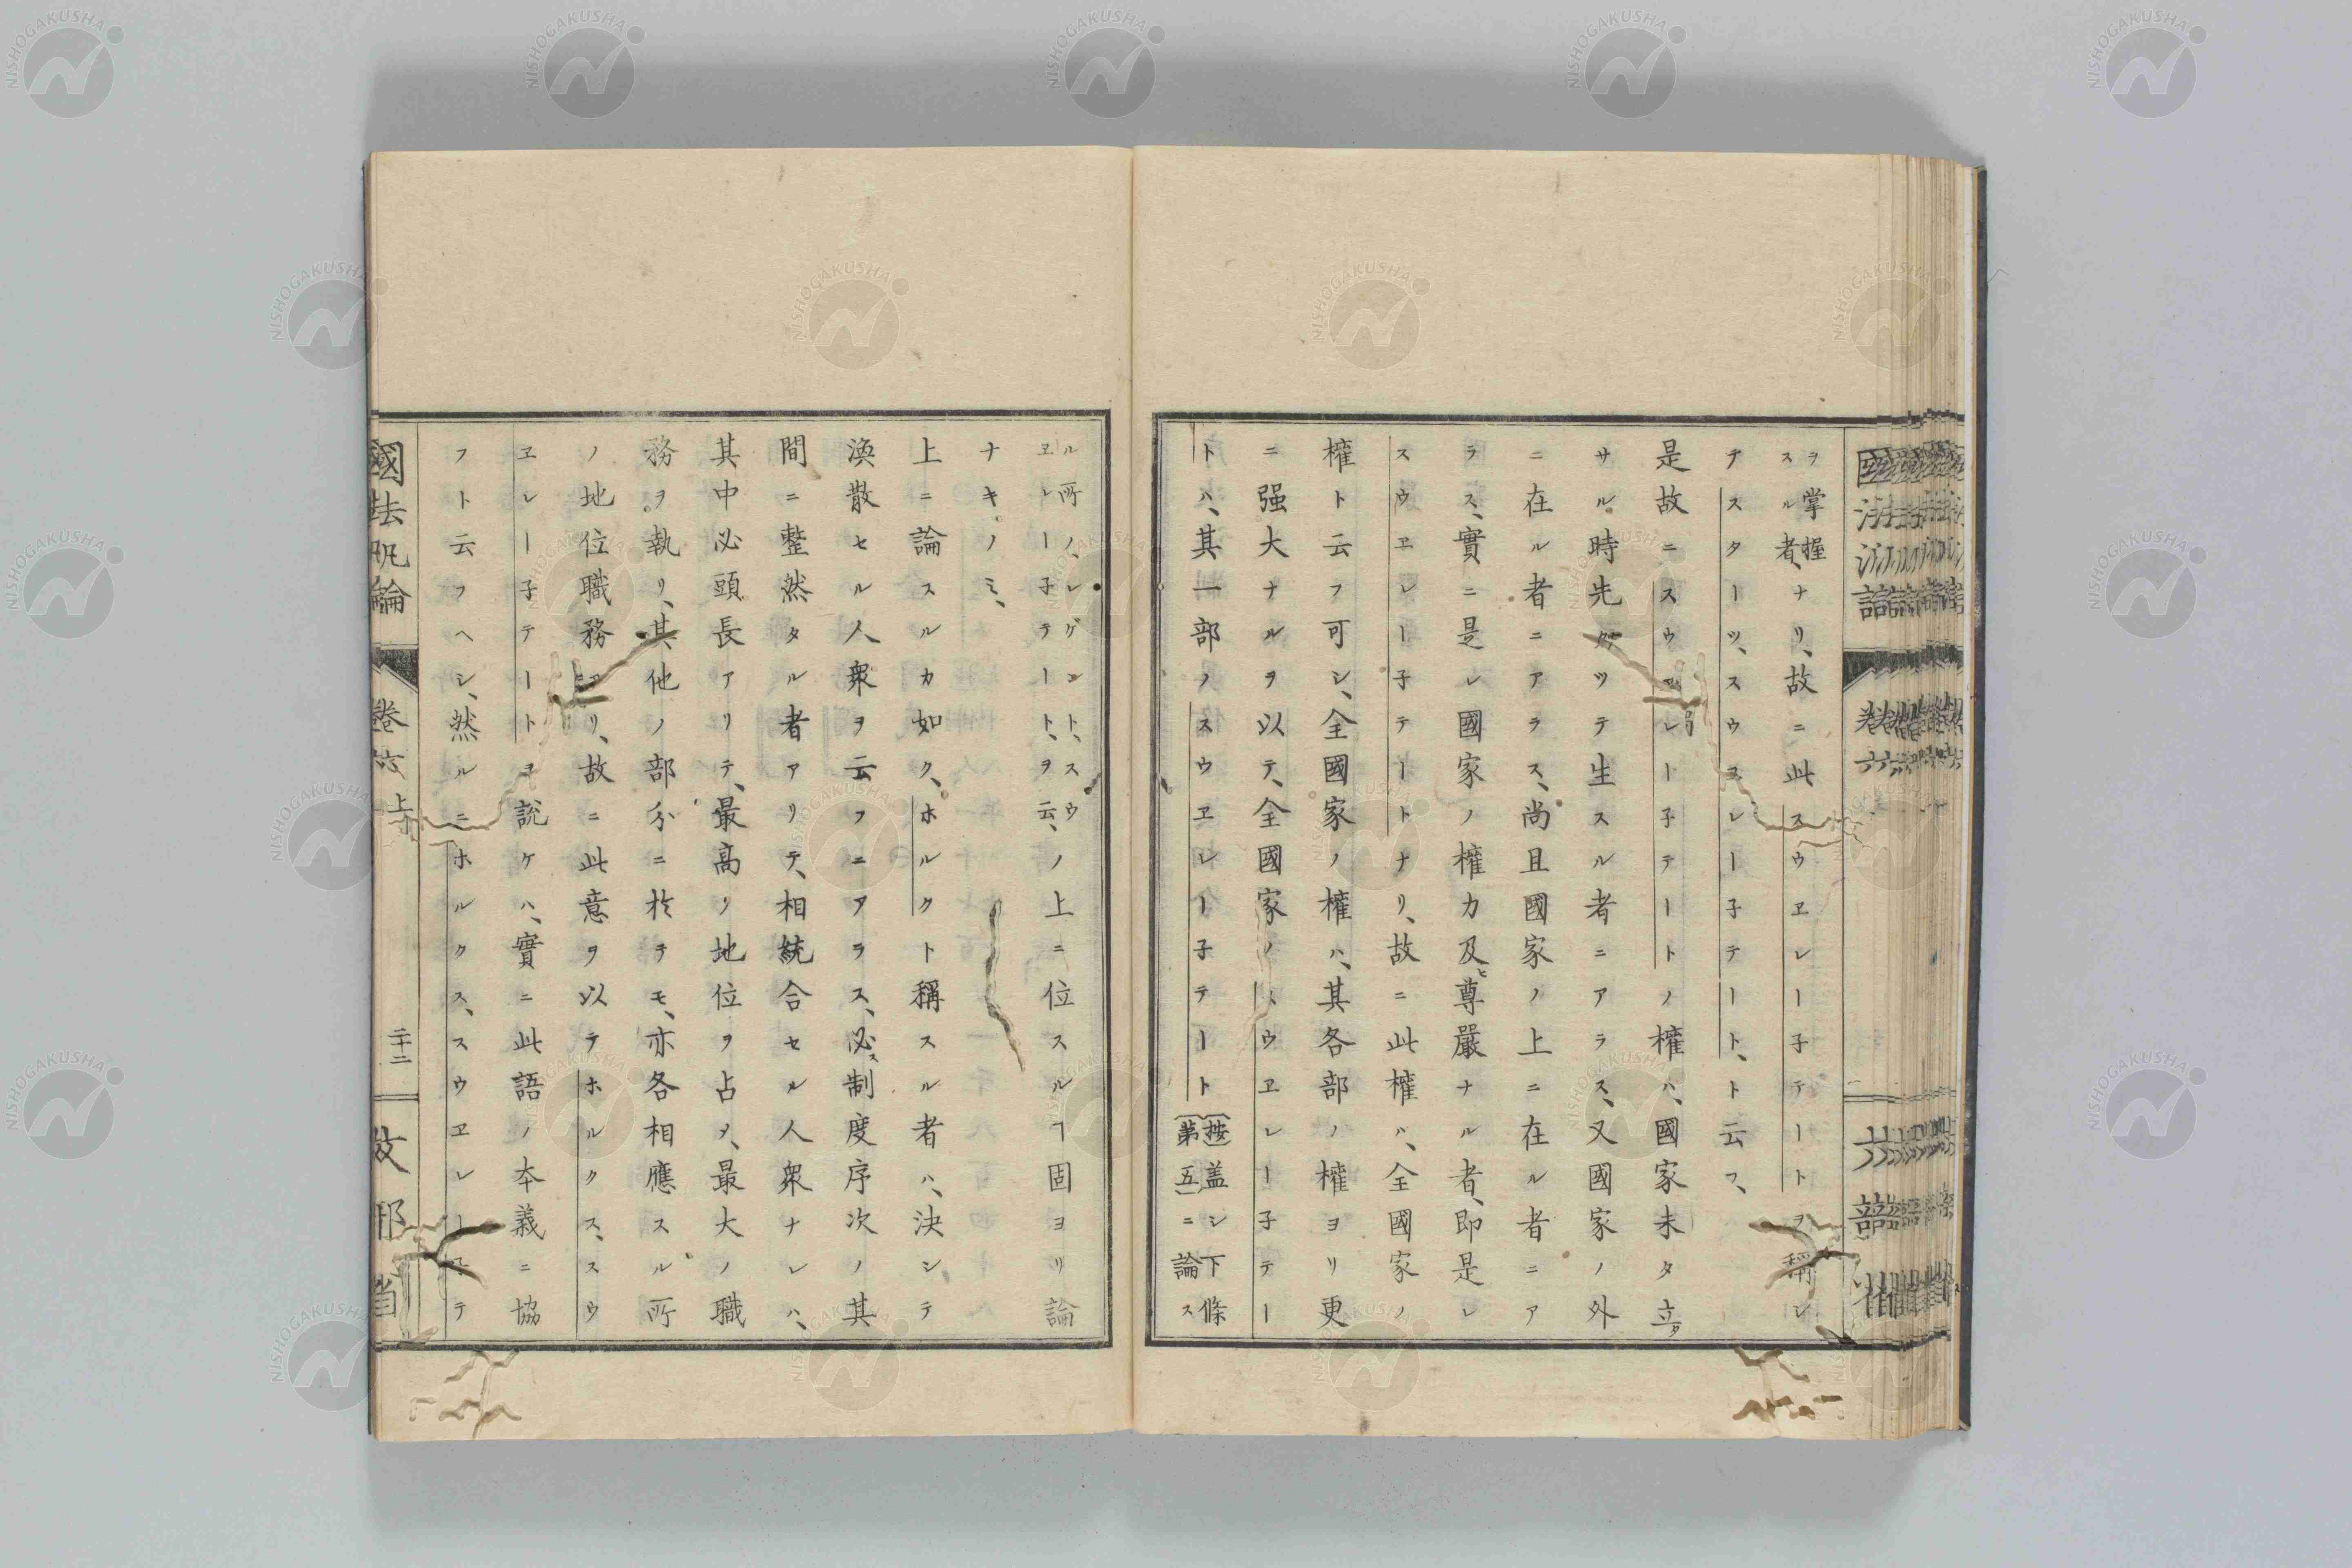 ヲ掌握
スル者、ナリ、故ニ此スウヱレー子テートヲ稱シ
テスターツ、スウヱレー子テート、ト云フ、
是故ニスウヱレー子テートノ權ハ、國家未タ立タ
サル時先タツテ生スル者ニアラス、又國家ノ外
ニ在ル者ニアラス、尚且國家ノ上ニ在ル者ニア
ラス、實ニ是レ國家ノ權力及ヒ尊嚴ナル者、即是レ
スウヱレー子テートナリ、故ニ此權ハ、全國家ノ
權ト云フ可シ、全國家ノ權ハ、其各部ノ權ヨリ更
ニ强大ナルヲ以テ、全國家ノスウヱレー子テー
トハ、其一部ノスウヱレー子テート
按盖シ下條
第五ニ論ス
ル所ノ、レゲント、スウ
ヱレー子テート、ヲ云、ノ上ニ位スルヿ固ヨリ論
ナキノミ、
上ニ論スルカ如ク、ホルクト稱スル者ハ、決シテ
渙散セル人衆ヲ云フニアラス、必ス制度序次ノ其
間ニ整然タル者アリテ、相統合セル人衆ナレハ、
其中必頭長アリテ、最高ノ地位ヲ占メ、最大ノ職
務ヲ執リ、其他ノ部分ニ於テモ、亦各相應スル所
ノ地位職務アリ、故ニ此意ヲ以テホルクス、スウ
ヱレー子テートヲ說ケハ、實ニ此語ノ本義ニ協
フト云フヘシ、然ルニホルクス、スウヱレー子テ
國法汎論
卷六上
二十二
文部省
NISHOGAKUSHA